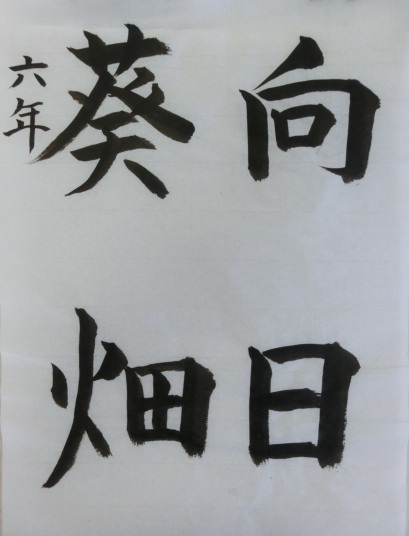 向日
葵畑
六年